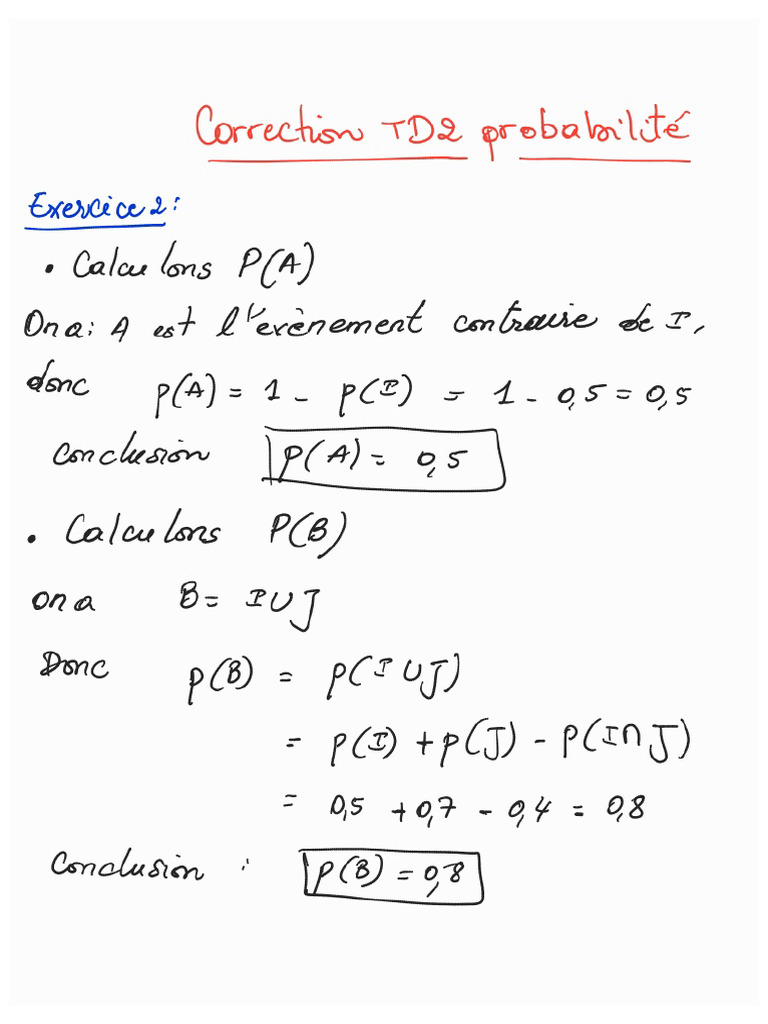 Correction TD2 probabilité
Exercice 2:
• Calculons P(A)
On a: A est l'evènement contraire de I,
donc p(A) = 1 - p(I) = 1 - 0,5 = 0,5
Conclusion p(A) = 0,5
• Calculons P(B)
on a B = I∪J
Donc p(B) = p(I∪J)
= p(I) + p(J) - p(I∩J)
= 0,5 + 0,7 - 0,4 = 0,8
Conclusion : p(B) = 0,8